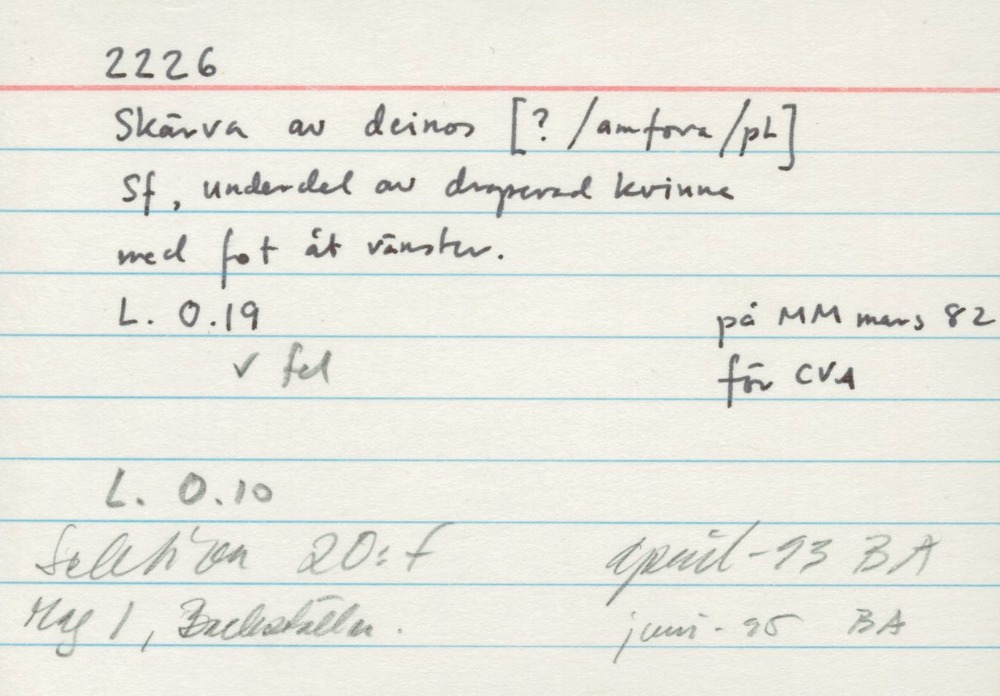 2226
Skärva av deinos [? /amfora/pL]
Sf, underdel av draperad kvinna
med fot åt vänster.
L. 0.19 på MM mars 82
v fel för CVA
L. 0.10
Sektion 20:F april -93 BA
Mag 1, Backställen. juni - 95 BA